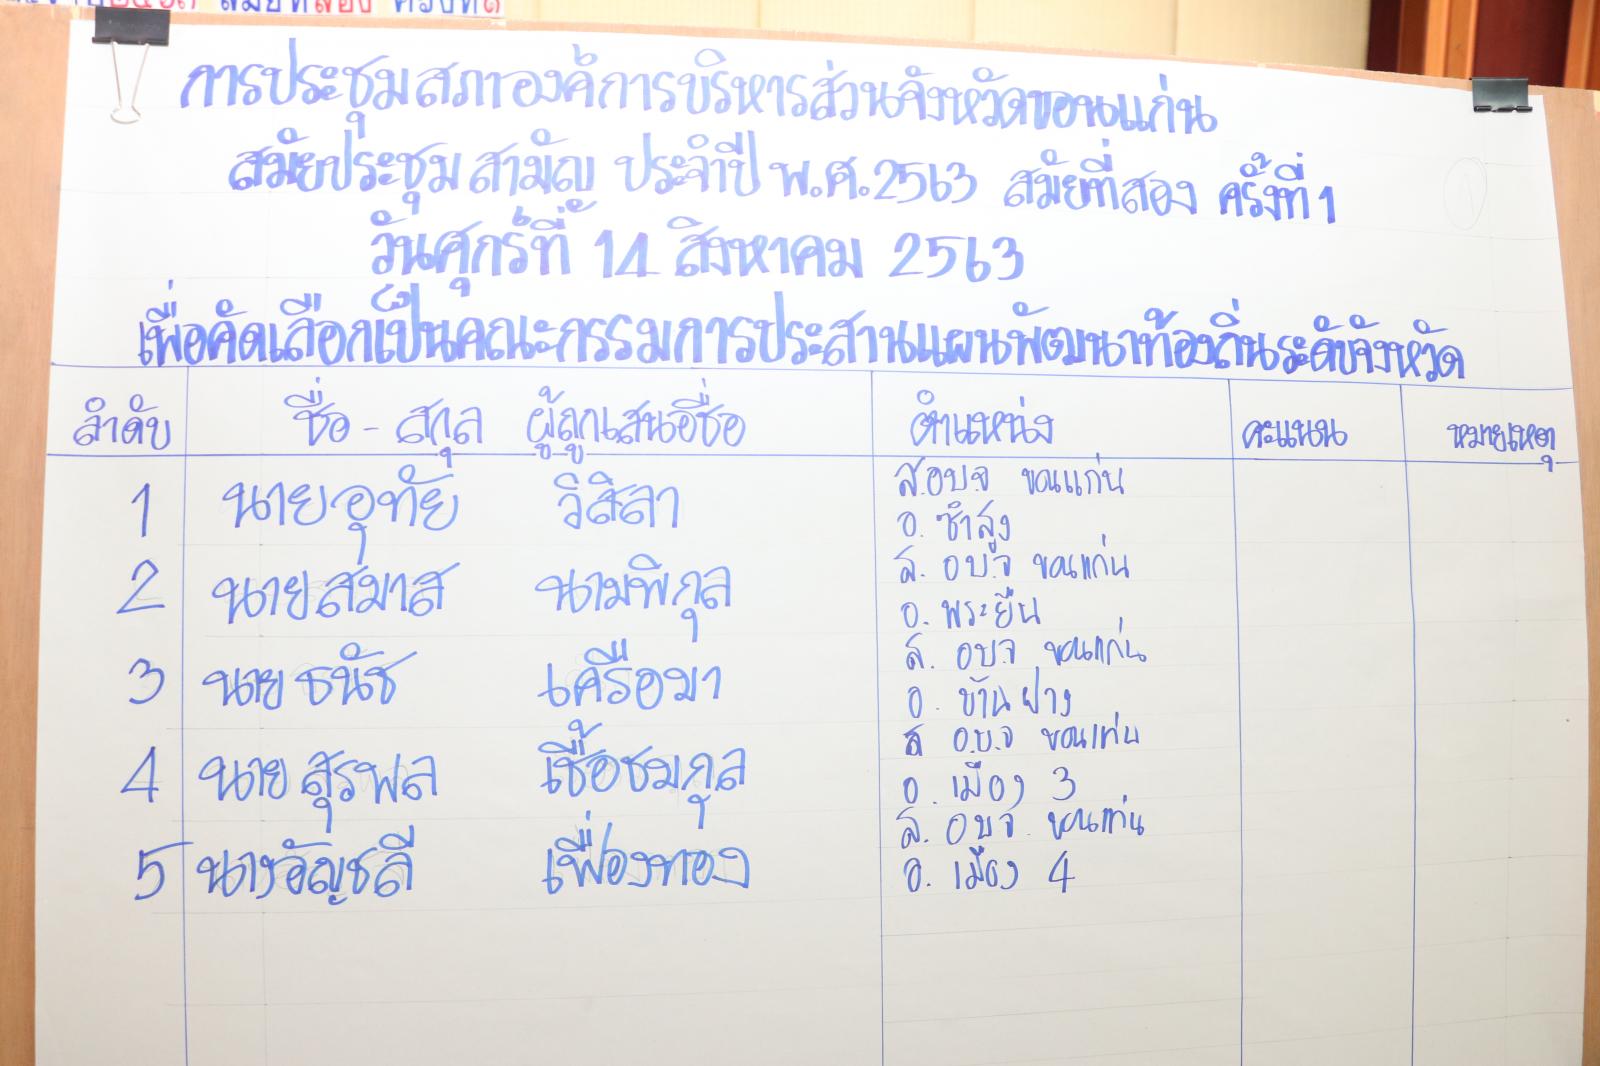 สมัยที่สอง ครั้งที่๑
การประชุมสภาองค์การบริหารส่วนจังหวัดขอนแก่น
สมัยประชุม สามัญ ประจำปี พ.ศ.2563 สมัยที่สอง ครั้งที่ 1
วันศุกร์ที่ 14 สิงหาคม 2563
เพื่อคัดเลือกเป็นคณะกรรมการประสานแผนพัฒนาท้องถิ่นระดับจังหวัด
ลำดับ ชื่อ - สกุล ผู้ถูกเสนอชื่อ ตำแหน่ง คะแนน หมายเหตุ
1 นายอุทัย วิสิลา ส.อบจ ขอนแก่น
อ. ซำสูง
2 นายสมาส นามพิกุล ส. อบจ ขอนแก่น
อ. พระยืน
3 นายธนัช เครือมา ส. อบจ ขอนแก่น
อ. บ้านฝาง
4 นายสุรพล เชื้อชมกุล ส อ.บ.จ ขอนแก่น
อ. เมือง 3
5 นางอัญชลี เฟื่องทอง ส. อบจ. ขอนแก่น
อ. เมือง 4